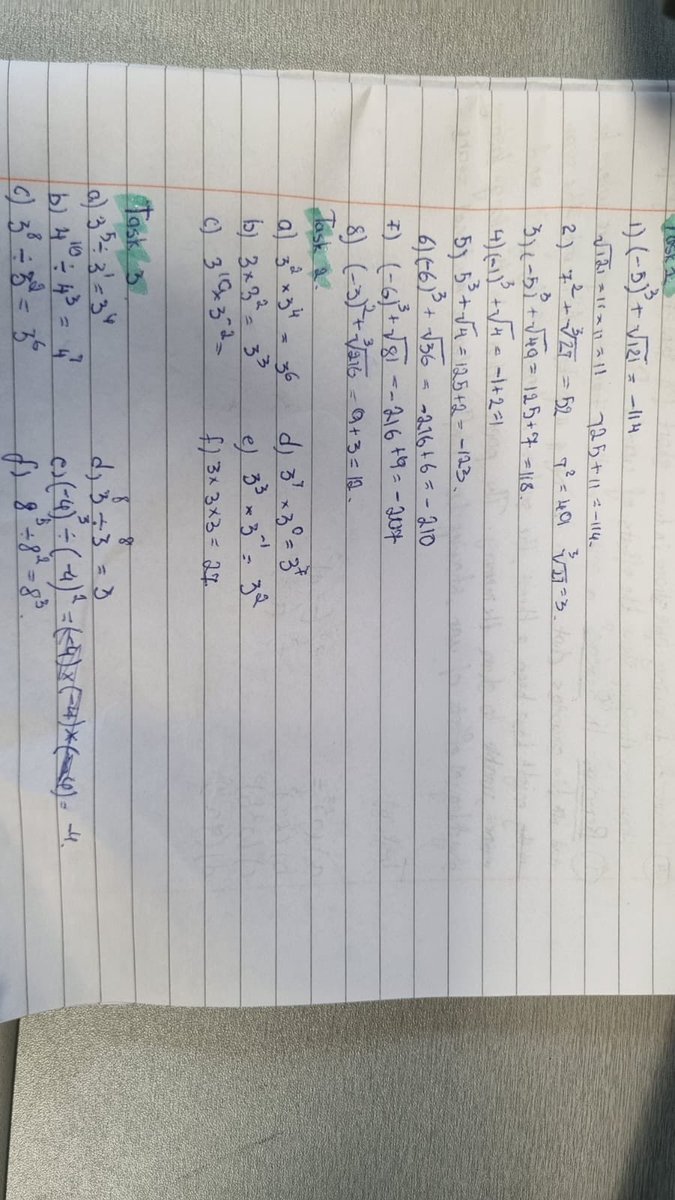 Task 1
1) (-5)³ + √121 = -114
√121 = 11 × 11 = 11 -125 + 11 = -114.
2) 7² + ∛27 = 52 7² = 49 ∛27 = 3.
3) (-5)³ + √49 = 125 + 7 = 118.
4) (-1)³ + √4 = -1 + 2 = 1
5) 5³ + √4 = 125 + 2 = -123.
6) (-6)³ + √36 = -216 + 6 = -210
7) (-6)³ + √81 = -216 + 9 = -207
8) (-3)² + ∛216 = 9 + 3 = 12.
Task 2.
a) 3² × 3⁴ = 3⁶ d) 3⁷ × 3⁰ = 3⁷
b) 3 × 3² = 3³ e) 3³ × 3⁻¹ = 3²
c) 3¹⁰ × 3⁻² = f) 3 × 3 × 3 = 27
Task 3
a) 3⁵ ÷ 3¹ = 3⁴ d) 3⁸ ÷ 3 = 3⁸
b) 4¹⁰ ÷ 4³ = 4⁷ e) (-4)³ ÷ (-4)² = (-4) × (-4) × (-4) = -4.
c) 3⁸ ÷ 3² = 3⁶ f) 8⁵ ÷ 8² = 8³.